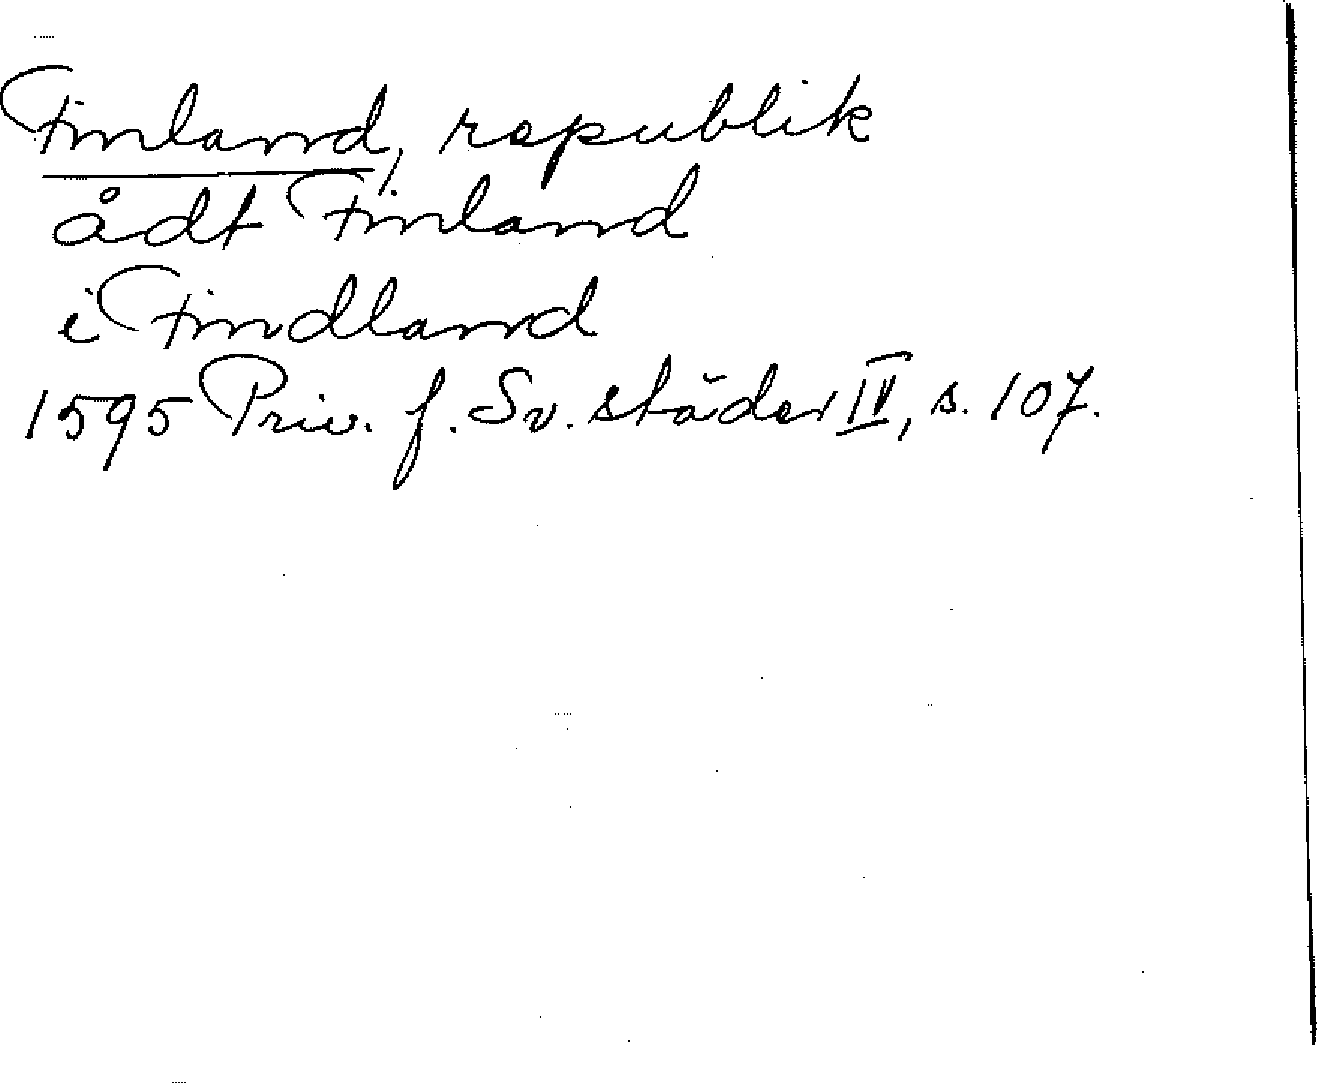 Finland, republik
ådt Finland
i Findland
1595 Priv. f. Sv. städer IV, s. 107.